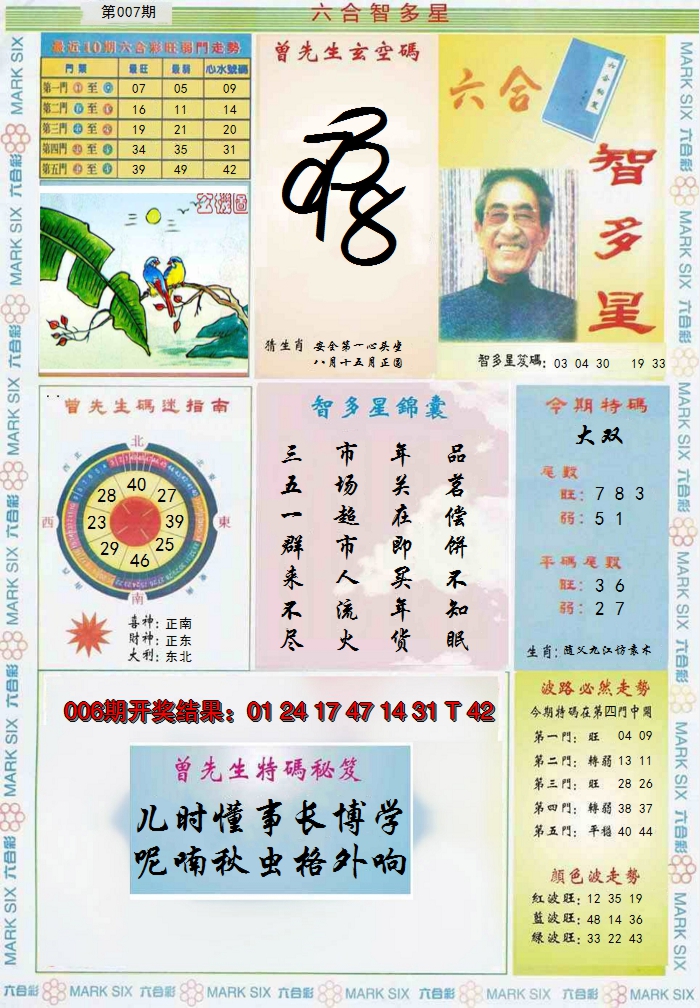 第007期
六合智多星
最近10期六合彩旺弱門走勢
門類 最旺 最弱 心水號碼
第一門 至 07 05 09
第二門 至 16 11 14
第三門 至 19 21 20
第四門 至 34 35 31
第五門 至 39 49 42
玄機圖
曾先生玄空碼
猜生肖 安全第一心头坐
八月十五月正圆
六合
智多星
智多星笈碼: 03 04 30 19 33
曾先生碼迷指南
北
西
東
南
40
27
39
25
46
29
23
28
喜神: 正南
財神: 正东
大利: 东北
智多星錦囊
品茗偿饼不知眠
年关在即买年货
市场超市人流火
三五一群来不尽
今期特碼
大双
尾數
旺: 7 8 3
弱: 5 1
平碼尾數
旺: 3 6
弱: 2 7
生肖: 随父九江访袁术
006期开奖结果：01 24 17 47 14 31 T 42
曾先生特碼秘笈
儿时懂事长博学
呢喃秋虫格外响
波路必然走势
今期特碼在第四門中開
第一門: 旺 04 09
第二門: 轉弱 13 11
第三門: 旺 28 26
第四門: 轉弱 38 37
第五門: 平穩 40 44
顏色波走勢
紅波旺: 12 35 19
藍波旺: 48 14 36
綠波旺: 33 22 43
MARK SIX 六合彩